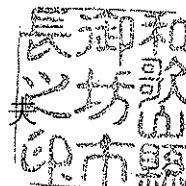 和歌山縣
御坊市
長之印
夫